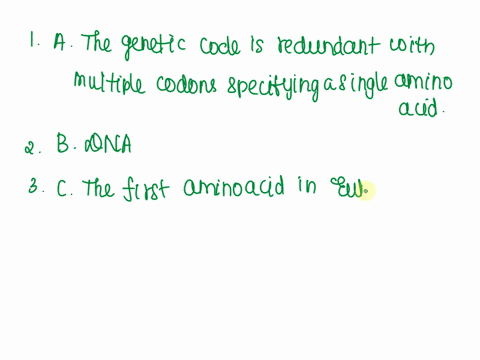 1. A. The genetic code is redundant with
multiple codons specifying a single amino
acid.
2. B. DNA
3. C. The first aminoacid in Eu